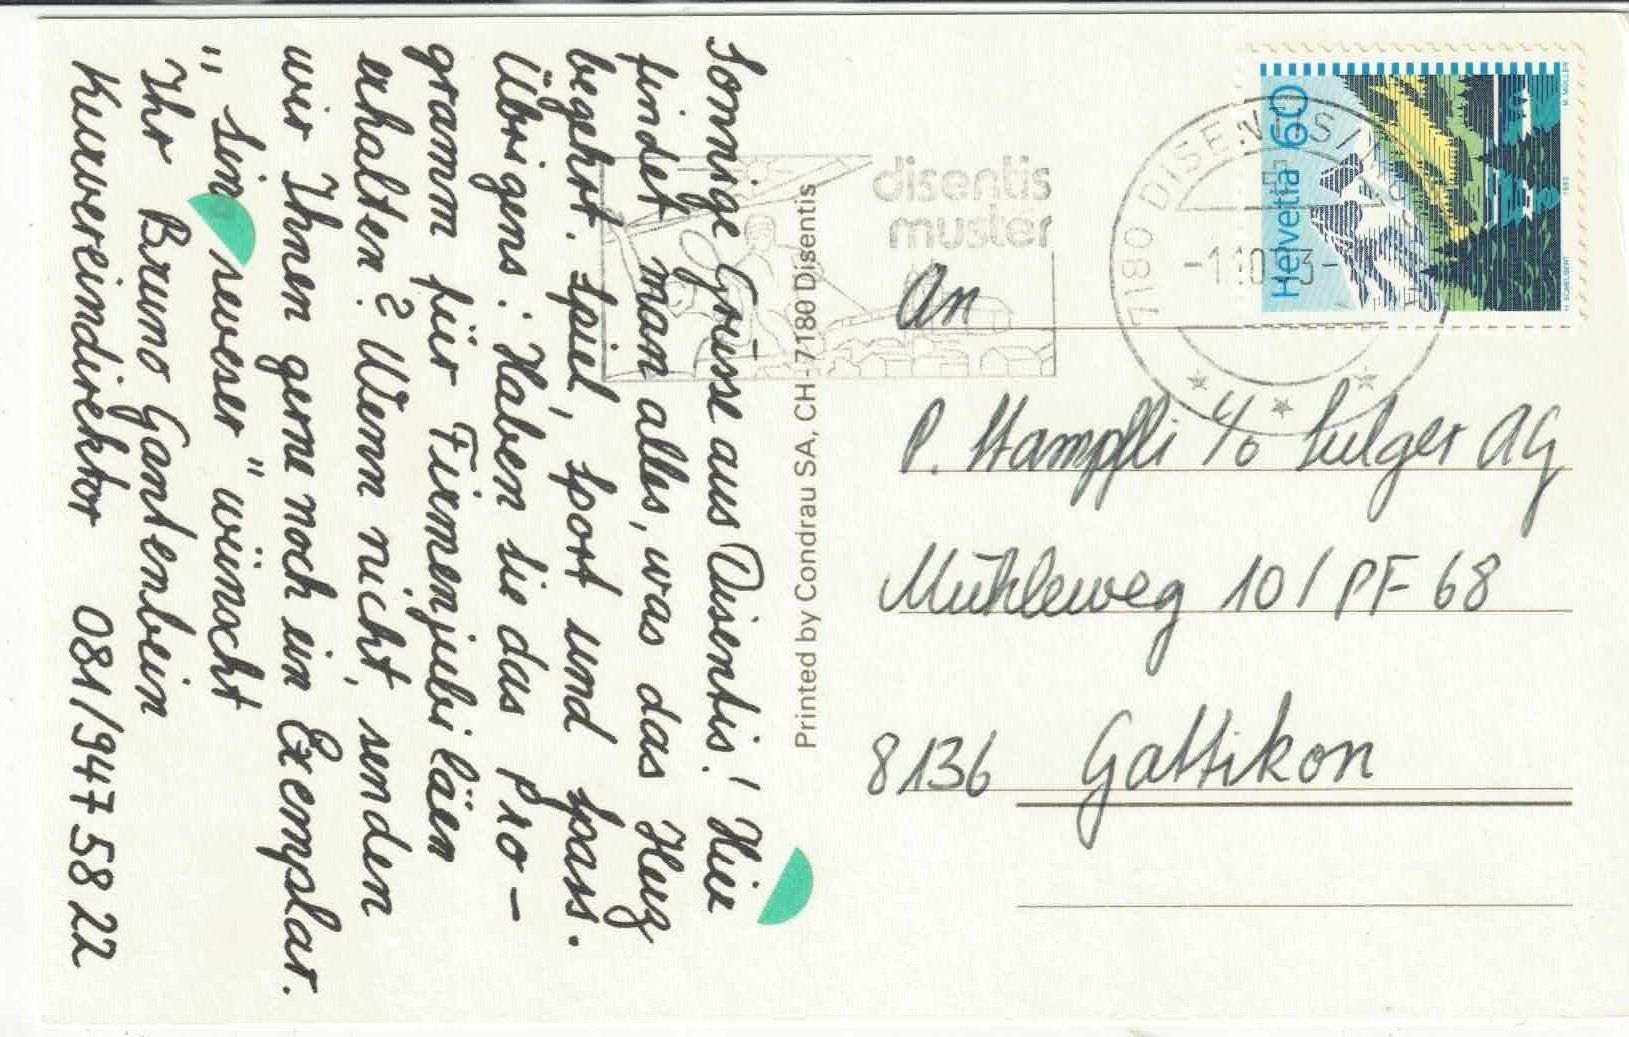 Sonnige Grüsse aus Disentis! Hier
findet man alles, was das Herz
begehrt. Spiel, Sport und Spass.
Übrigens: Haben Sie das Pro-
gramm für Firmenjubiläen
erhalten? Wenn nicht, senden
wir Ihnen gerne noch ein Exemplar.
"Sin seveser" wünscht
Ihr Bruno Gantenbein
Kurvereindirektor 081/947 58 22
Printed by Condrau SA, CH-7180 Disentis
disentis
muster
7180 DISENTIS/
-1.10.93-
Helvetia 60
M. MÜLLER
An
P. Stampfli c/o Sulger AG
Mühleweg 10 / PF 68
8136 Gattikon